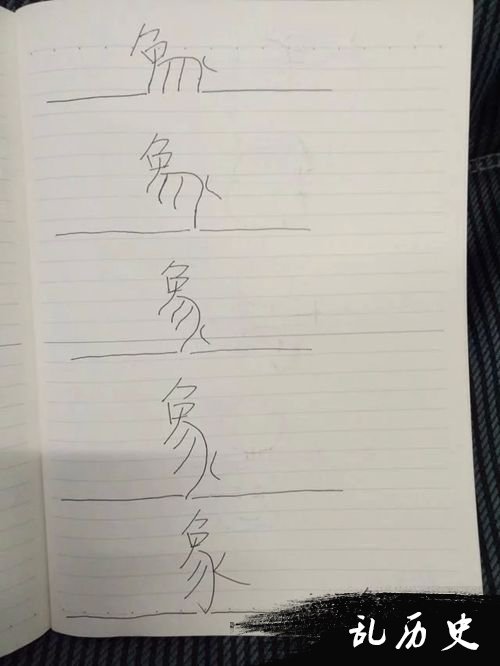 象
象
象
象
象
乱历史